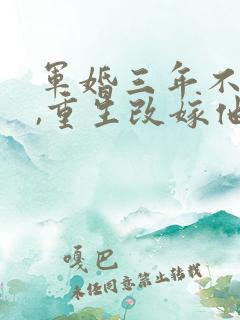 军婚三年不
,重生改嫁他
嘎巴
未经同意禁止转载